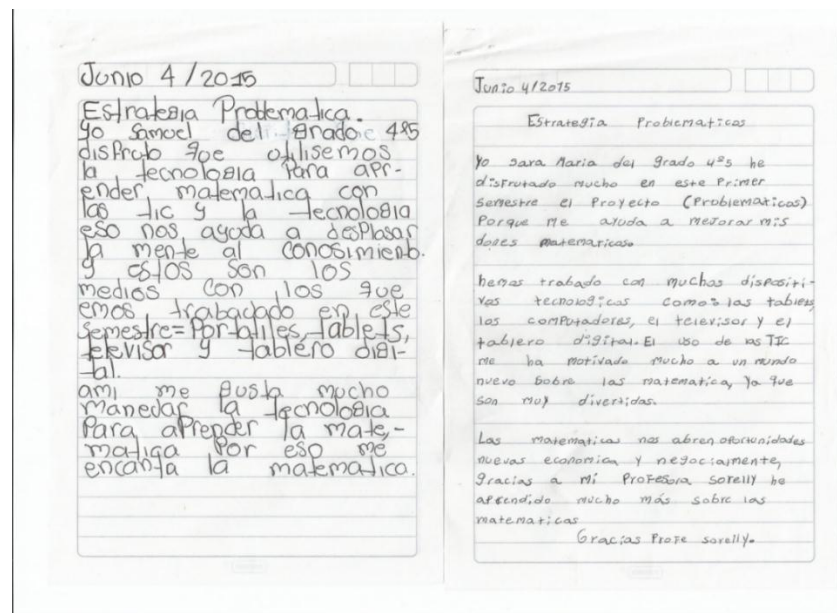 Junio 4/2015
Estrategia Problematica.
yo Samuel del grado 4º5
disfruto que utilisemos
la tecnologia para apr-
ender matematica con
las tic y la tecnologia
eso nos ayuda a desplasar
la mente al conosimiento.
y estos son los
medios con los que
emos trabadado en este
semestre=Portatiles, tablets,
televisor y tablero digi-
tal.
ami me gusta mucho
manedar la tecnologia
Para aprender la mate,-
matiga Por eso me
encanta la matematica.
Junio 4/2015
Estrategia Problematicas
yo sara Maria del grado 4º5 he
disfrutado mucho en este Primer
semestre el Proyecto (Problematicas)
Porque me ayuda a mejorar mis
dones matematicos
hemos trabado con muchos dispositi-
vos tecnologicos como: las tablets,
los computadores, el televisor y el
tablero digital. El uso de las TIC
me ha motivado mucho a un mundo
nuevo bobre las matematica, ya que
son muy divertidas.
Las matematicas nos abren oportunidades
nuevas economica y negocialmente,
gracias a mi Profesora Sorelly he
aprendido mucho más sobre las
matematicas
Gracias Profe Sorelly.